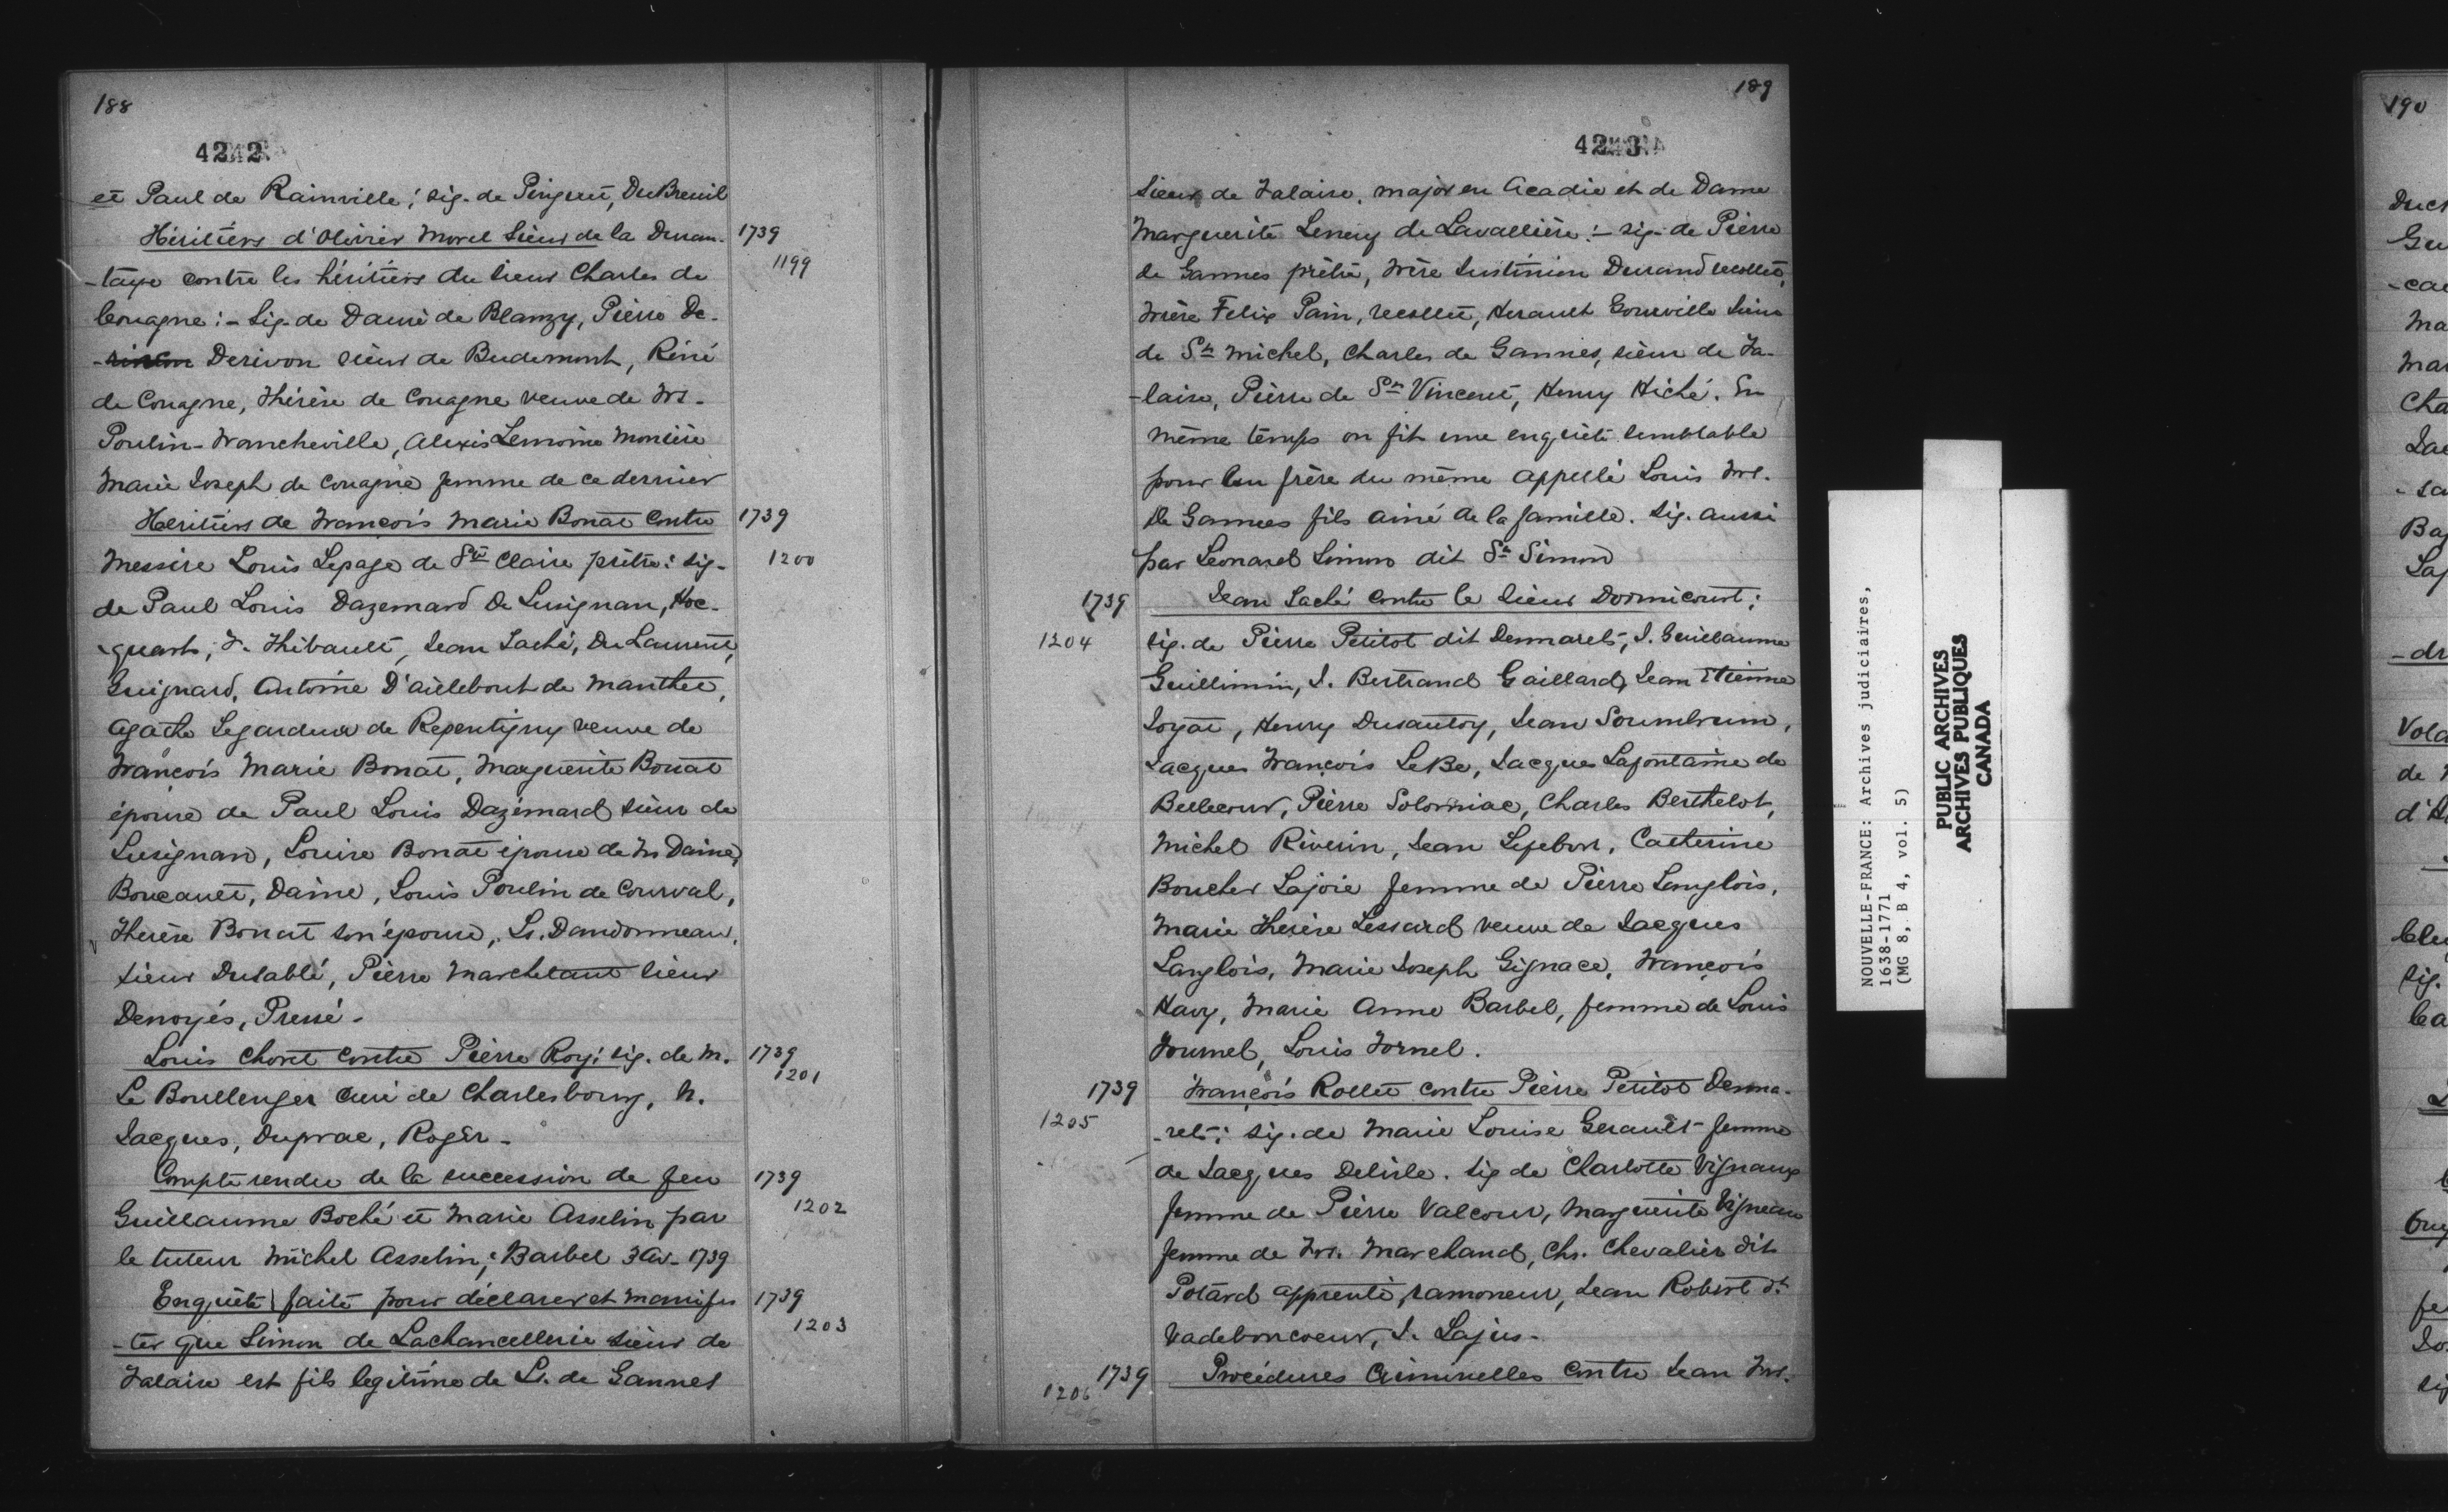 188
4242
et Paul de Rainville; sig. de Pinguet, DuBreuil
Héritiers d'Olivier Morel Sieur de la Duran- 1739
-taye contre les héritiers du sieur Charles de 1199
Couagne:- Sig. de Dauré de Blanzy, Pierre De-
Derivon sieur de Budemont, Réné
de Couagne, Thérèse de Couagne veuve de Frs.
Poulin-Francheville, Alexis Lemoine Monière
Marie Joseph de Couagne femme de ce dernier
Héritiers de François Marie Bouat contre 1739
Messire Louis Lepage de Ste Claire prêtre: sig- 1200
de Paul Louis Dazemard De Lusignan, Hoc-
-quart, F. Thibault, Jean Laché, Du Laurent,
Guignard, Antoine D'ailebout de Manthet,
Agathe Legardeur de Repentigny veuve de
François Marie Bouat, Marguerite Bouat
épouse de Paul Louis Dazémard sieur de
Lusignan, Louise Bouat épouse de M Daine,
Boucault, Daine, Louis Poulin de Courval,
Therèse Bouat son épouse, Ls. Dandonneau,
sieur Dusablé, Pierre Marchetaut sieur
Denoyés, Pressé.
Louis Choret contre Pierre Roy: sig. de M. 1739
1201
Le Boullenger Curé de Charlesbourg, N.
Jacques, Duprac, Roger-
Compte rendu de la succession de feu 1739
Guillaume Boché et Marie Asselin par 1202
le tuteur Michel Asselin; Barbel 3 Av- 1739
Enquête faite pour déclarer et manifes 1739
-ter que Simon de Lachancellerie sieur de 1203
Falaise est fils legitime de Ls. de Gannes
189
4243
sieur de Falaise, major en Acadie et de Dame
Marguerite Leneuf de Lavallière:- sig- de Pierre
de Gannes prêtre, frère Justinien Durand recollet,
frère Felix Pain, recollet, Herault Gourville Sieur
de St Michel, Charles de Gannes, sieur de Fa-
-laise, Pierre de St Vincent, Henry Hiché. En
même temps on fit une enquête semblable
pour un frère du même appellé Louis Frs.
De Gannes fils ainé de la famille. Sig. aussi
par Léonard Simon dit St Simon
1739 Jean Laché contre le sieur Dormicourt;
1204 sig. de Pierre Petitot dit Desmarets, J. Guillaume
Guillimin, J. Bertrand Gaillard, Jean Etienne
Joyat, Henry Dusautoy, Jean Soumbrun,
Jacques François LeBé, Jacques Lafontaine de
Bellecour, Pierre Solormiac, Charles Berthelot,
Michel Riverin, Jean Lefebvr, Catherine
Boucher Lajoie femme de Pierre Langlois,
Marie Therèse Lessard veuve de Jacques
Langlois, Marie Joseph Gignace, François
Havy, Marie Anne Barbel, femme de Louis
Fournel, Louis Fornel.
1739 François Rollet contre Pierre Petitot Desma-
1205 -rets: sig. de Marie Louise Gerault femme
de Jacques Delisle. Sig de Charlotte Vignaux
femme de Pierre Valcour, Marguerite Vigneau
femme de Frs. Marchand, Chs. Chevalier dit
Potard apprenti, ramoneur, Jean Robert dt
Vadeboncoeur, J. Lajus-
1739 Procédures Criminelles contre Jean Frs.
1206
NOUVELLE-FRANCE: Archives judiciaires,
1638-1771
(MG 8, B 4, vol. 5)
PUBLIC ARCHIVES
ARCHIVES PUBLIQUES
CANADA
190